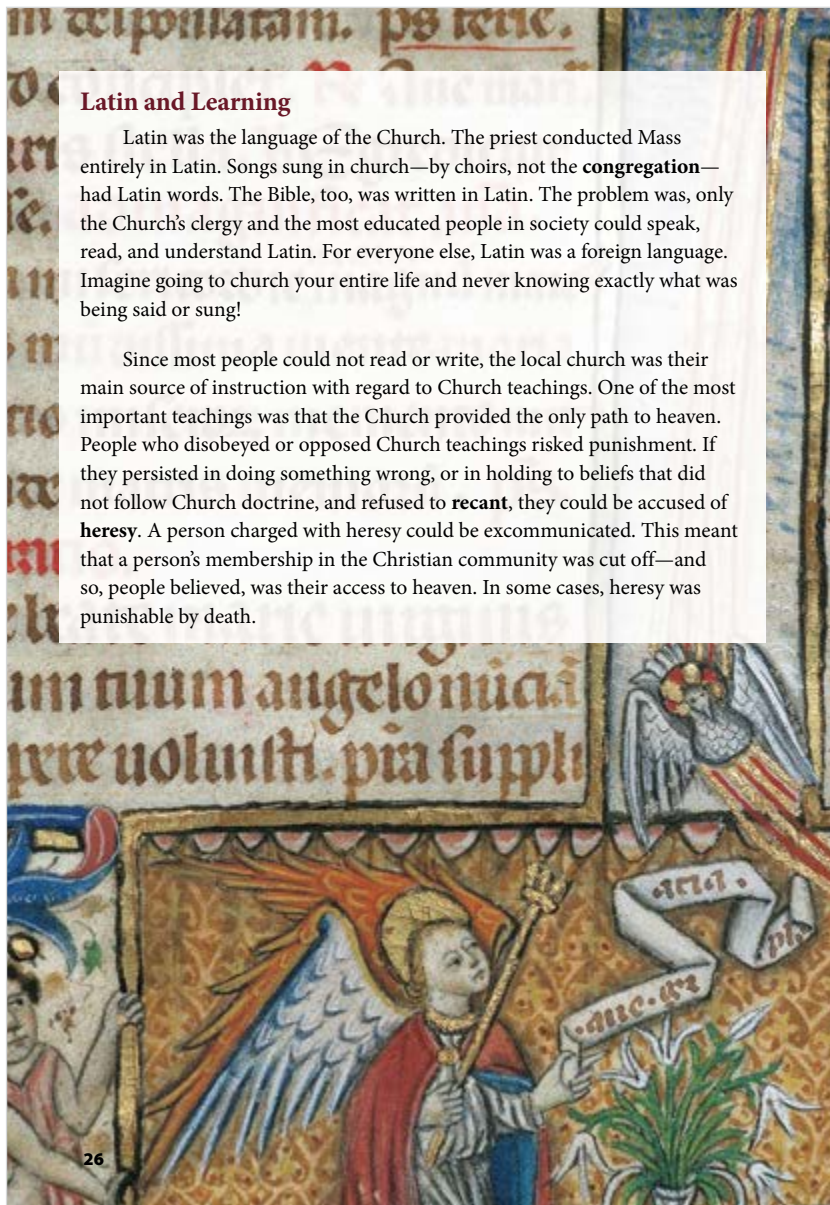 Latin and Learning
Latin was the language of the Church. The priest conducted Mass
entirely in Latin. Songs sung in church—by choirs, not the congregation—
had Latin words. The Bible, too, was written in Latin. The problem was, only
the Church’s clergy and the most educated people in society could speak,
read, and understand Latin. For everyone else, Latin was a foreign language.
Imagine going to church your entire life and never knowing exactly what was
being said or sung!
Since most people could not read or write, the local church was their
main source of instruction with regard to Church teachings. One of the most
important teachings was that the Church provided the only path to heaven.
People who disobeyed or opposed Church teachings risked punishment. If
they persisted in doing something wrong, or in holding to beliefs that did
not follow Church doctrine, and refused to recant, they could be accused of
heresy. A person charged with heresy could be excommunicated. This meant
that a person’s membership in the Christian community was cut off—and
so, people believed, was their access to heaven. In some cases, heresy was
punishable by death.
um tuum angelo nūciā
uoluisti. pia suppli
26